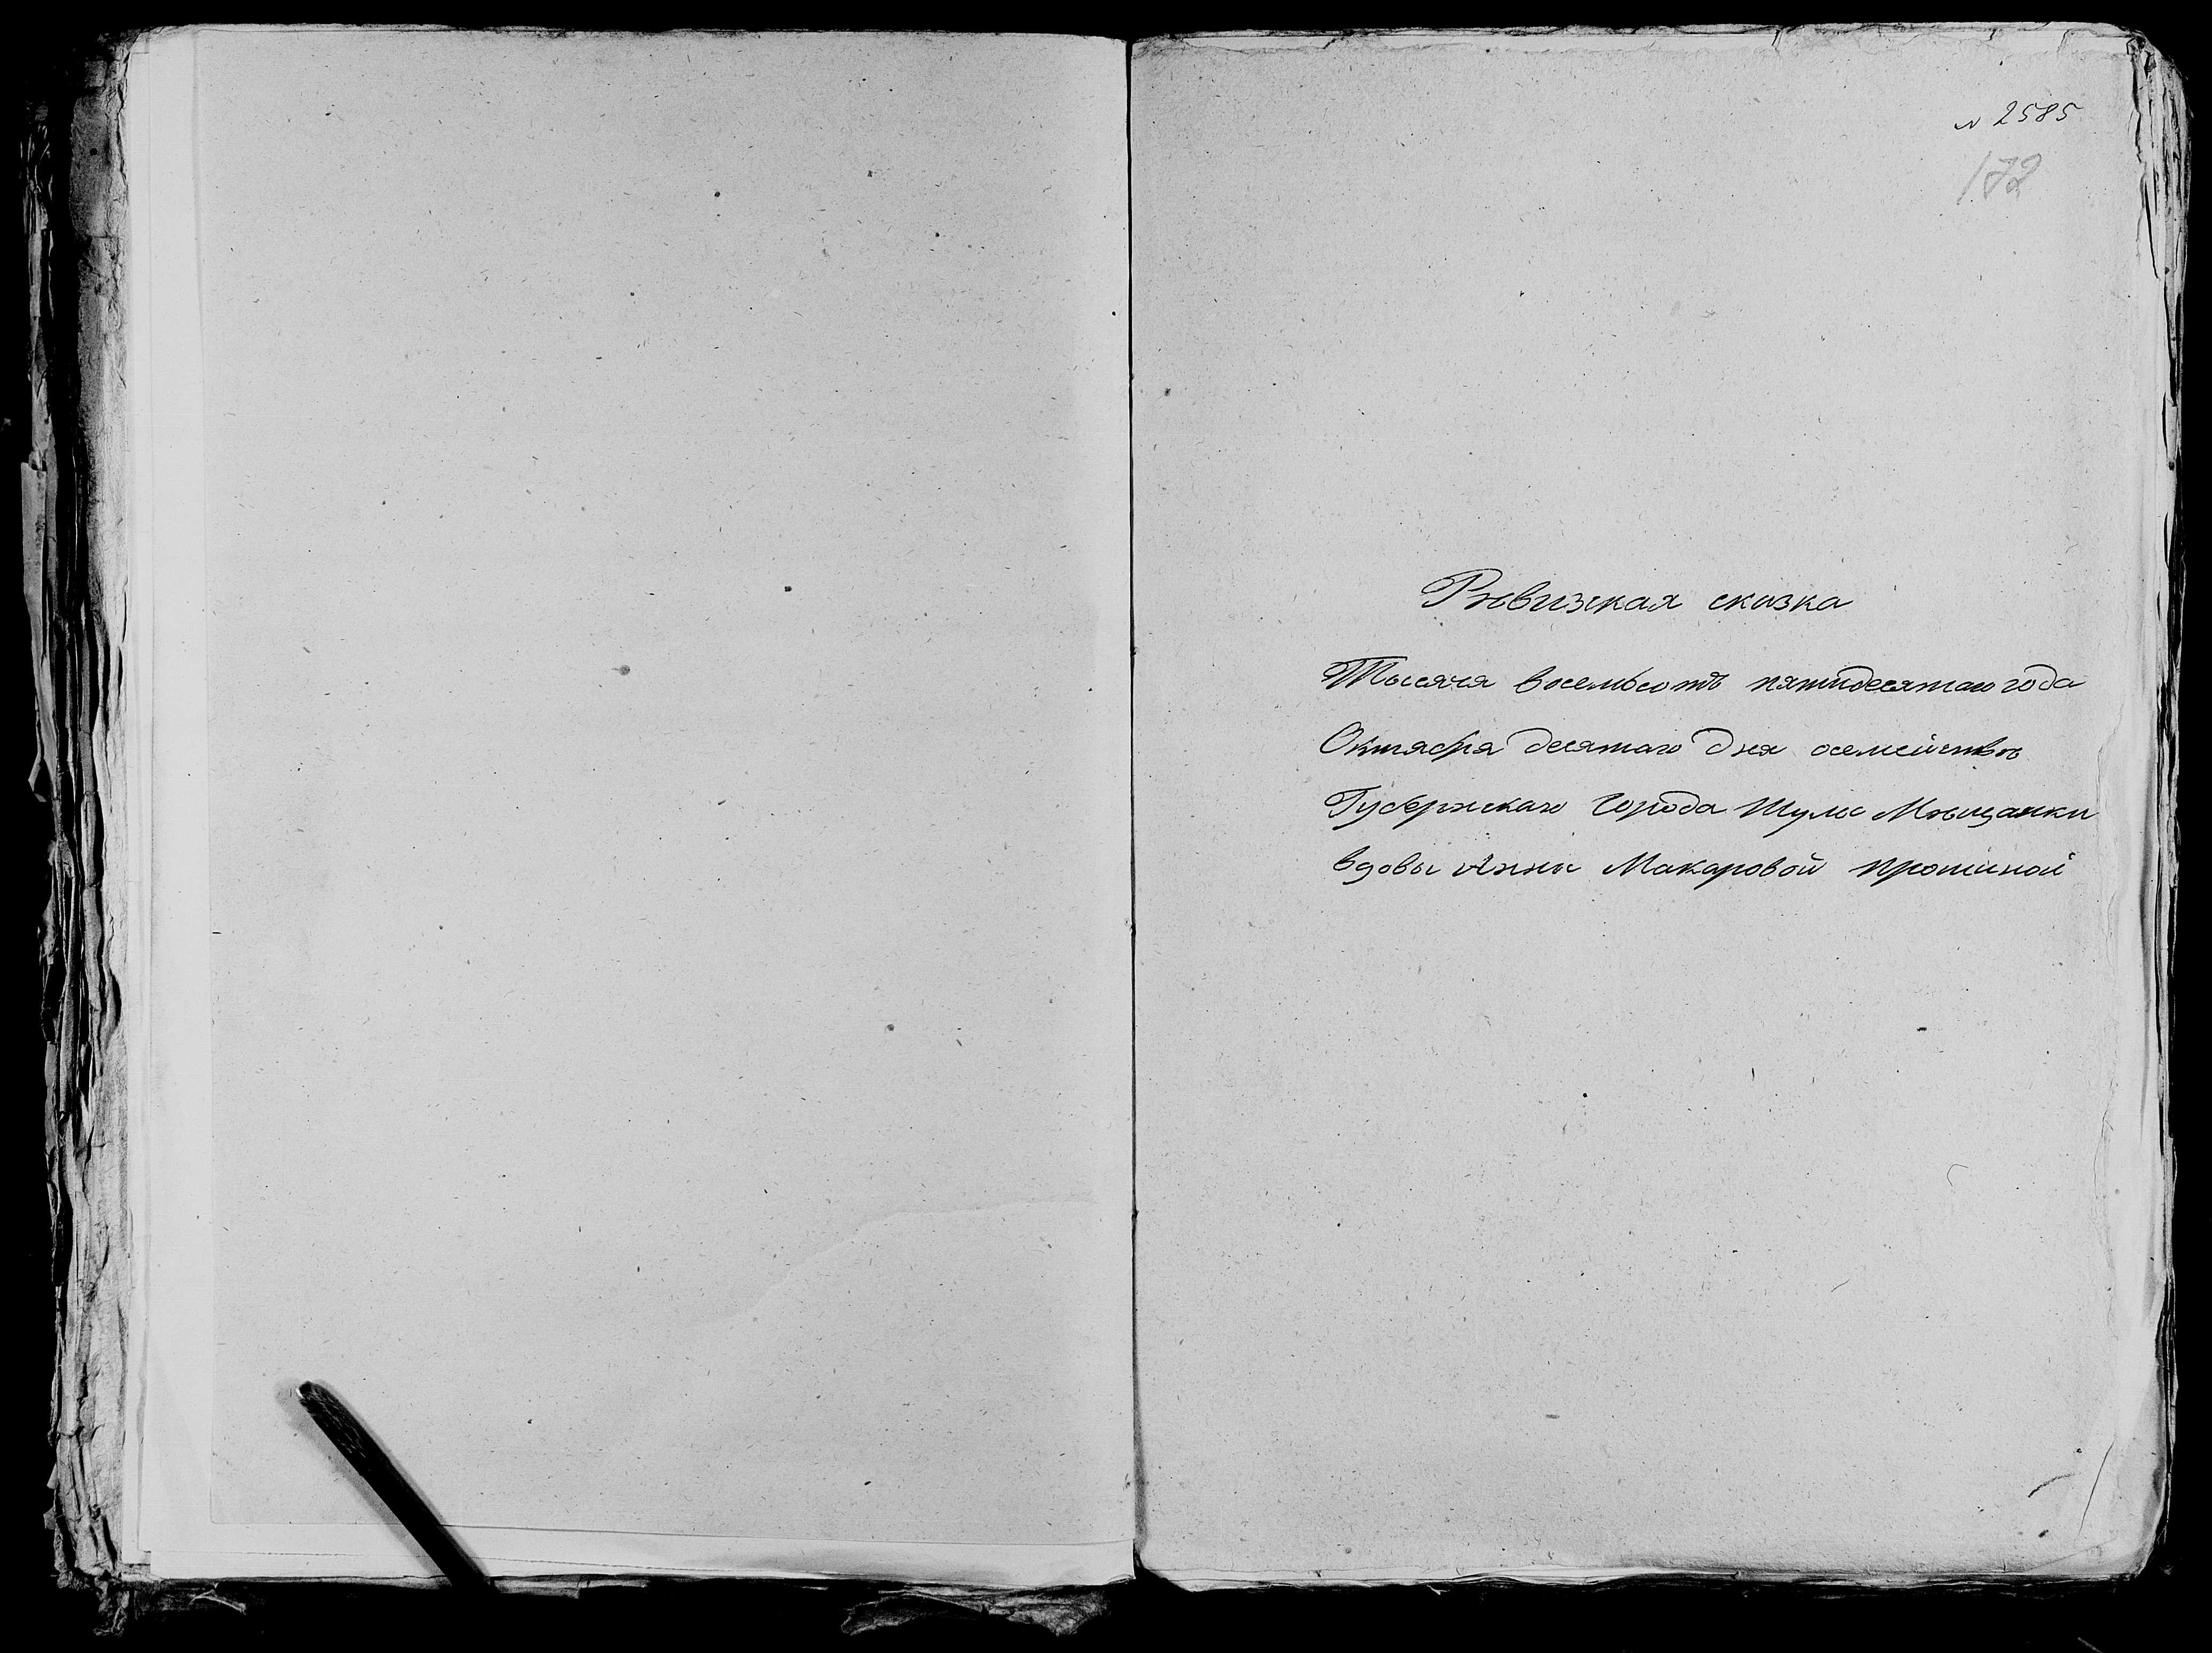 № 2585
172
Рѣвизская сказка
Тысяча восемьсотъ пятидесятаго года
Октября десятаго дня осемействѣ
Губернскаго города Тулы Мѣщанки
вдовы Анны Макаровой